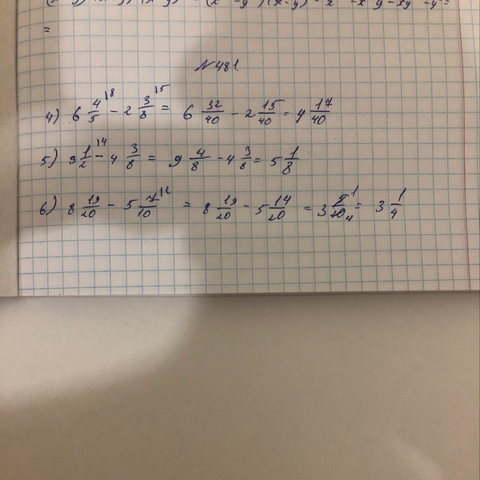 =
№ 481.
4) 6 4/5 |8 - 2 3/8 |5 = 6 32/40 - 2 15/40 = 4 17/40
5) 9 1/2 |4 - 4 3/8 = 9 4/8 - 4 3/8 = 5 1/8
6) 8 19/20 - 5 7/10 |2 = 8 19/20 - 5 14/20 = 3 5/20 1 4 = 3 1/4